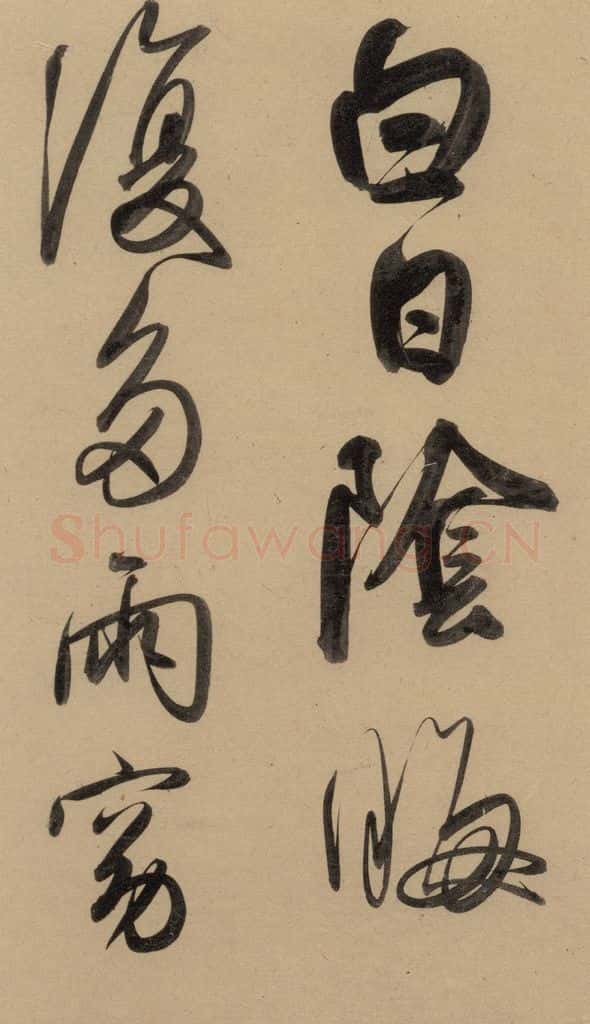 白日陰晦
復多雨
Shufawang.CN